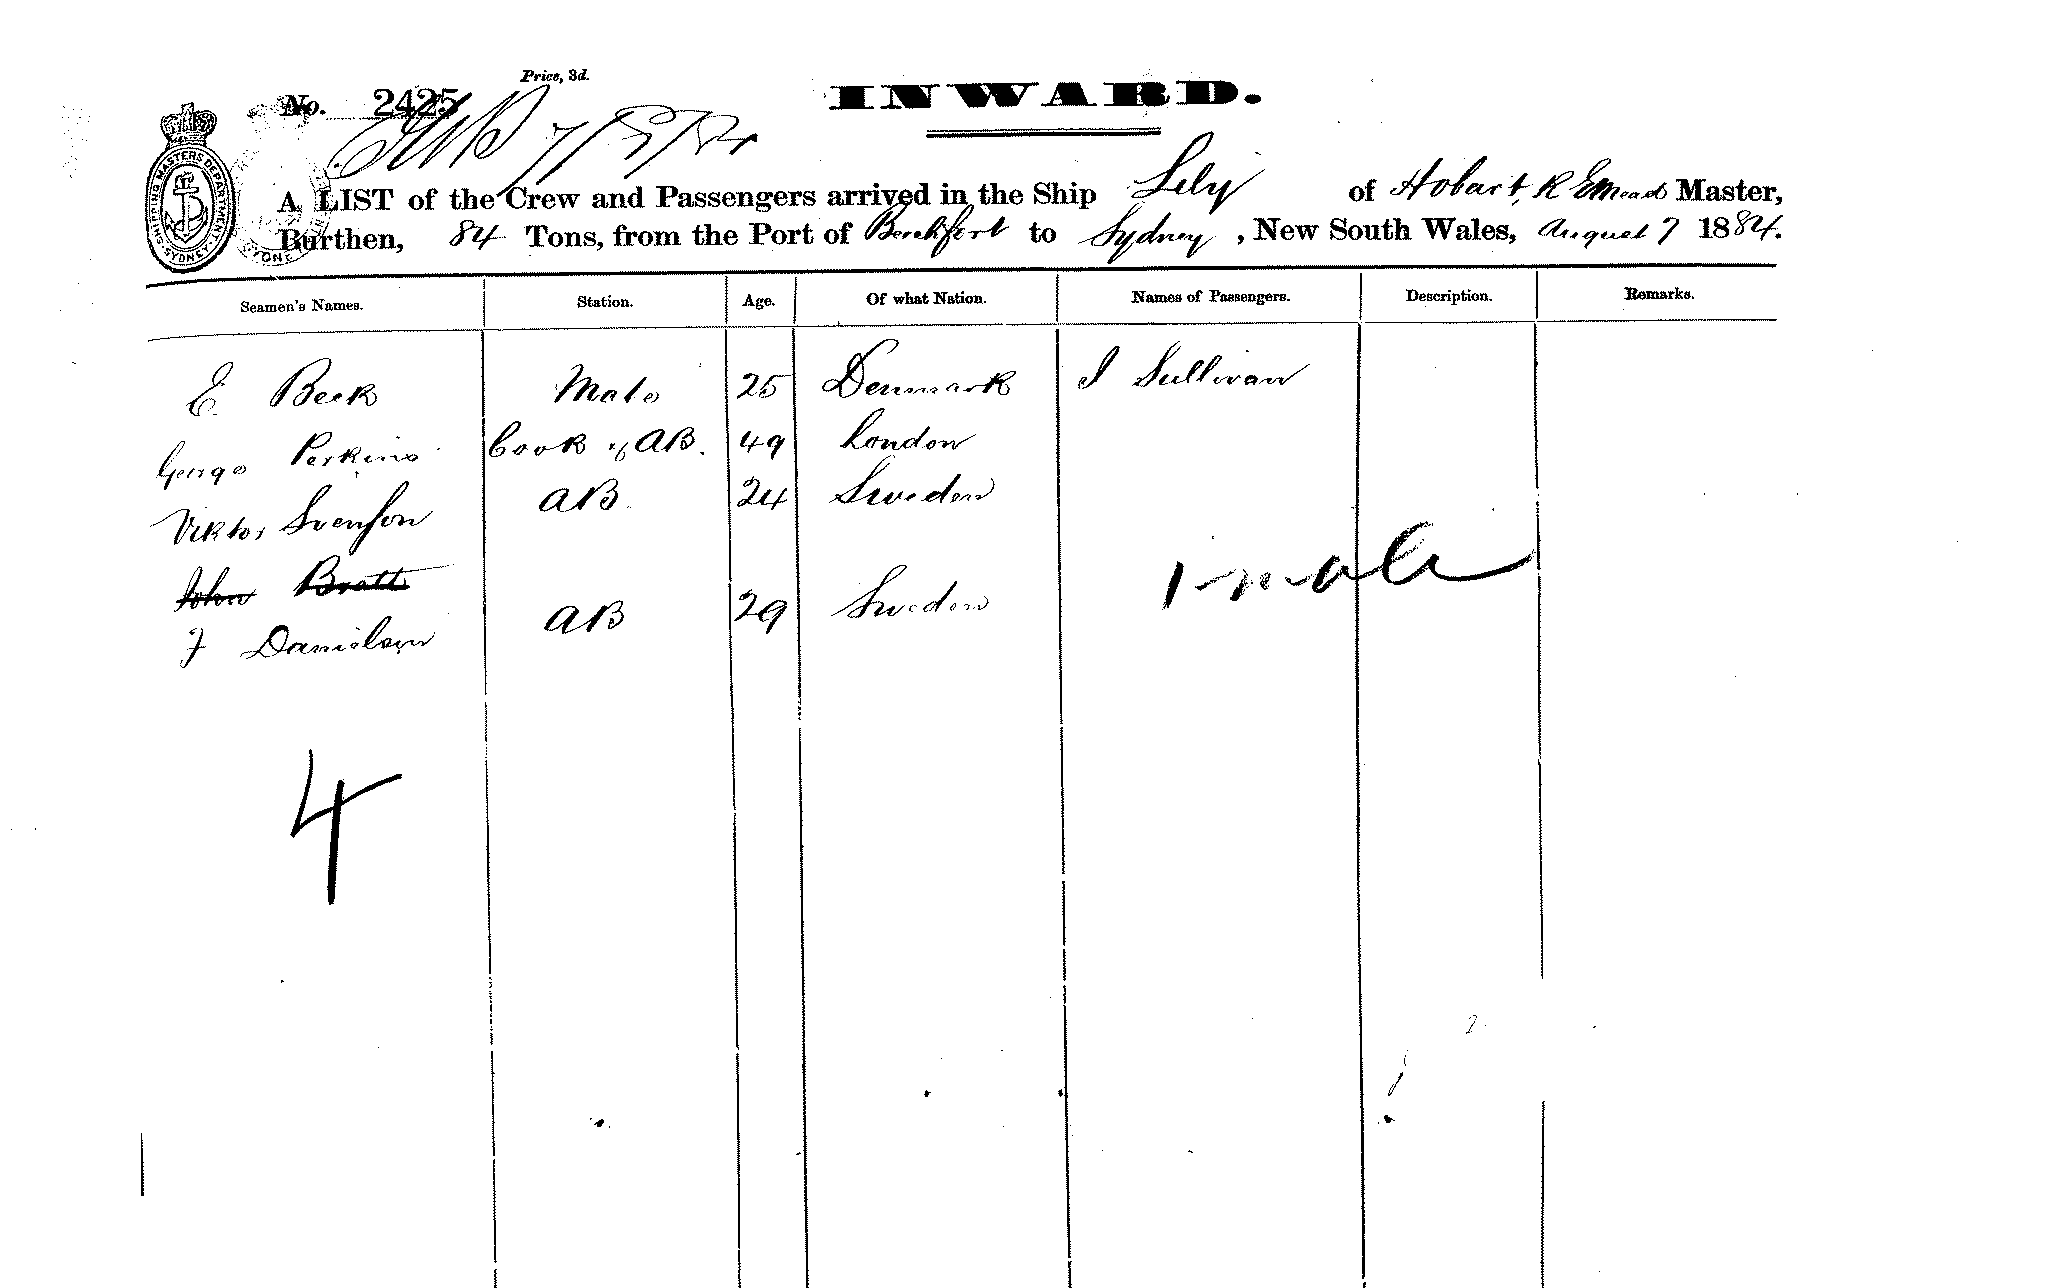 Price, 3d.
No. 2425 INWARD.
7/8/84
SHIPPING MASTERS DEPARTMENT SYDNEY
A LIST of the Crew and Passengers arrived in the Ship Lily of Hobart, R E Mead Master,
Burthen, 84 Tons, from the Port of to Sydney, New South Wales, August 7 1884.
Seamen's Names. Station. Age. Of what Nation. Names of Passengers. Description. Remarks.
E Beck Mate 25 Denmark J Sullivan
George Perkins Cook & AB. 49 London
Viktor Svenson AB. 24 Sweden
John Bratt
J Danielson AB 29 Sweden
1 male
4